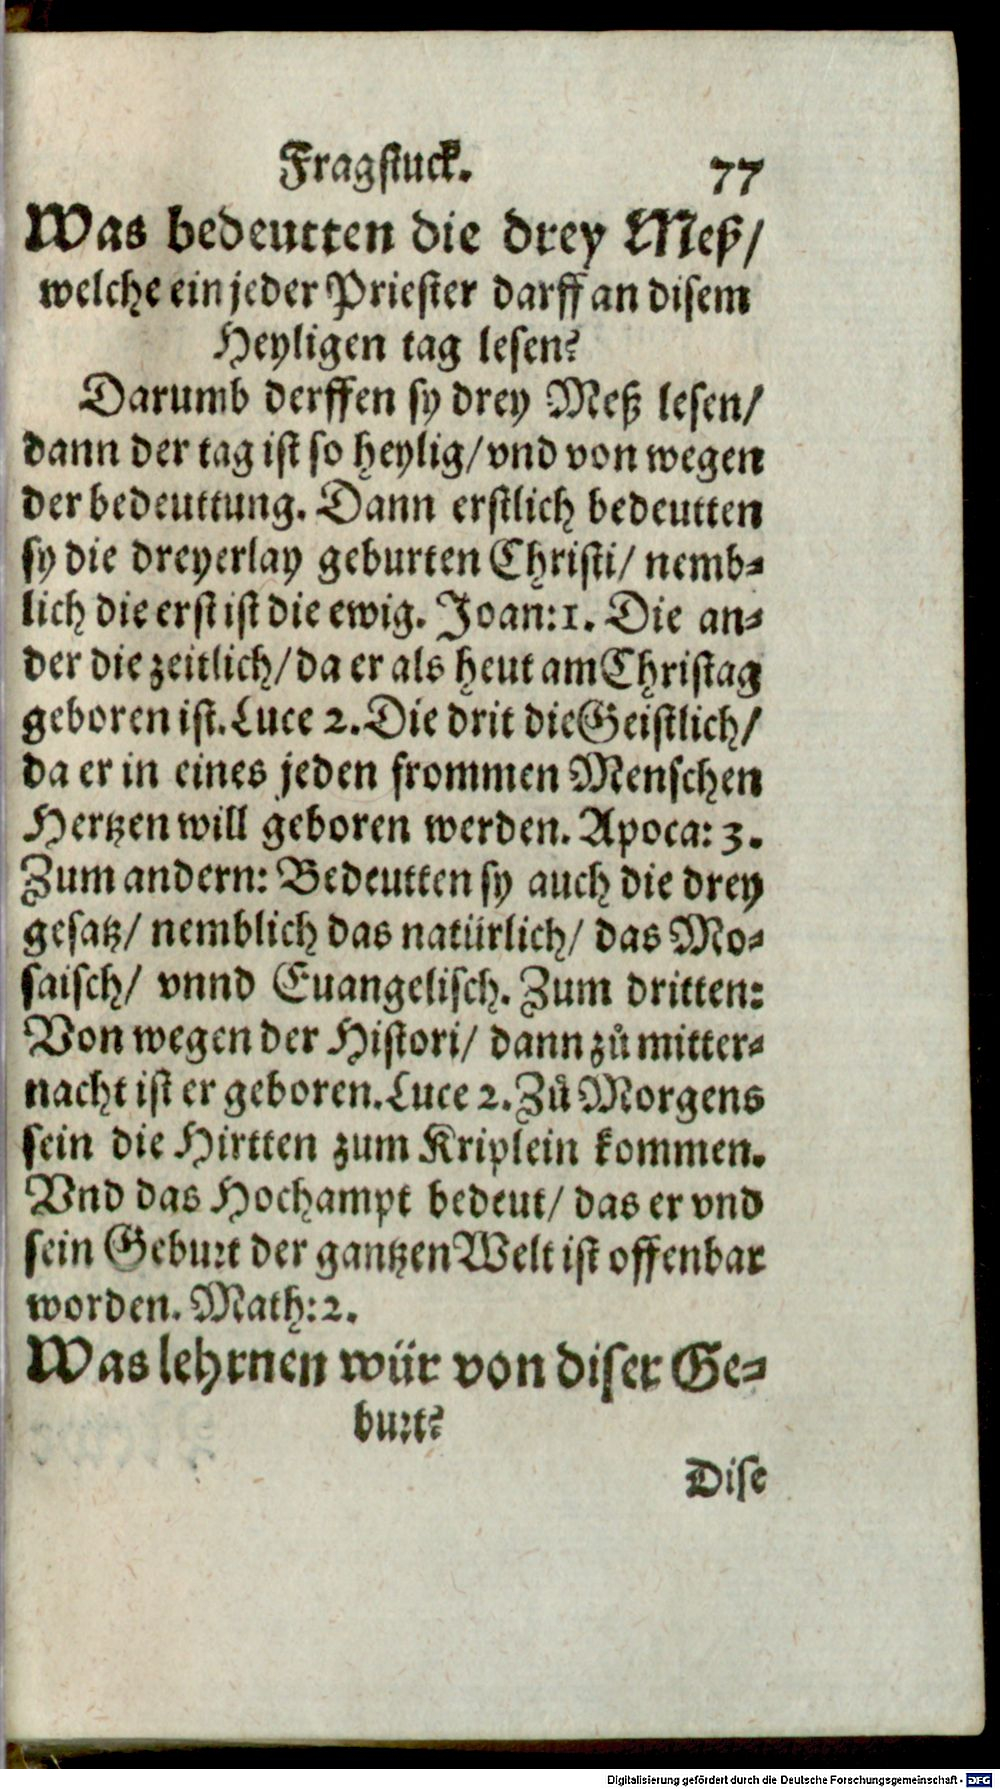 Fragstuck. 77
Was bedeutten die drey Meß/
welche ein jeder Priester darff an disem
Heyligen tag lesen?
Darumb derffen sy drey Meß lesen/
dann der tag ist so heylig/ vnd von wegen
der bedeuttung. Dann erstlich bedeutten
sy die dreyerlay geburten Christi/ nemb-
lich die erst ist die ewig. Joan: 1. Die an-
der die zeitlich/ da er als heut am Christag
geboren ist. Luce 2. Die drit die Geistlich/
da er in eines jeden frommen Menschen
Hertzen will geboren werden. Apoca: 3.
Zum andern: Bedeutten sy auch die drey
gesatz/ nemblich das natürlich/ das Mo-
saisch/ vnnd Euangelisch. Zum dritten:
Von wegen der Histori/ dann zů mitter-
nacht ist er geboren. Luce 2. Zů Morgens
sein die Hirtten zum Kriplein kommen.
Vnd das Hochampt bedeut/ das er vnd
sein Geburt der gantzen Welt ist offenbar
worden. Math: 2.
Was lehrnen wür von diser Ge-
burt?
Dise
Digitalisierung gefördert durch die Deutsche Forschungsgemeinschaft - DFG